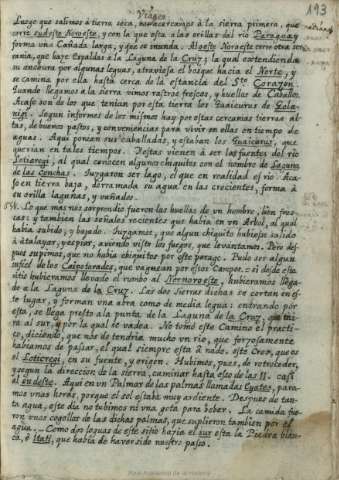 Viages
193
Luego que salimos à tierra seca, nos acercamos à la sierra primera, que
corre sudeste Noroeste, y con la que esta a las orillas del rio Paraguay
forma una Cañada larga, y que se inunda. Al oeste Noroeste corre otra ser-
rania, que hace espaldas à la Laguna de la Cruz; la qual extendiendia
su anchura por algunas leguas, atraviesa el bosque hacia el Norte, y
se camina por ella hasta cerca de la estancia del Sto. Corazon.
Quando llegamos à la sierra vimos rastros frescos, y huellas de Caballos.
Acaso son de los que tenian por esta tierra los Guaicurus de
Segun informes de los mismos hay por estas cercanias tierras al-
tas, de buenos pastos, y conveniencias para vivir en ellas en tiempo de
aguas. Aqui ponen sus caballadas, y estaban los Guaicurus, que
querian en tales tiempos. Destas vienen à ser las fuentes del rio
, al qual conocen algunos chiquitos con el nombre de Laguna
de las Conchas. Juzgaron ser lago, el que en realidad es rio. Aca-
so en tierra baja, derramada su agua en las crecientes, forma à
su orilla lagunas, y bañados.
Lo que mas nos sorprendio fueron las huellas de un hombre, bien fres-
cas: y tambien las señales recientes que habia en un Arbol, al qual
habia subido, y bajado. Juzgamos, que algun chiquito hubiesse salido
à atalayar, y espiar, avendo visto los fuegos, que levantamos. Pero des-
pues supimos, que no habia chiquitos por este parage. Pudo ser algun
infiel de los Caipotorades, que vaguean por estos Campos. = si desde este
sitio hubieramos llevado el rumbo al Nornoroeste, hubieramos llega-
do a la Laguna de la Cruz. Las dos Sierras dichas se cortan en es-
te lugar, y forman una abra como de media legua: entrando por
esta, se llega presto a la punta de la Laguna de la Cruz, que
ra al sur, y por la qual se vadea. No tomò este Camino el practi-
co, diciendo, que nos detendria mucho un rio, que forzosamente
habiamos de passar, el qual siempre esta à nado. este creo, que es
el , en su fuente, y origen. Hubimos, pues, de retroceder,
y segun la direccion de la sierra, caminar hasta eso de las 11. casi
al sudeste. Aqui en un Palmar de las palmas llamadas , para-
mos unas horas, porque el sol estabà muy ardiente. Despues de tan-
ta agua, este dia no tubimos ni una gota para beber. La comida fue-
ron unos cogollos de las dichas palmas, que suplieron tambien por el
agua. _ Como dos leguas de este sitio hacia el sur esta la Piedra blan-
ca, ò Itatî, que habia de haver sido nuestro passo.
Real Academia de la Historia